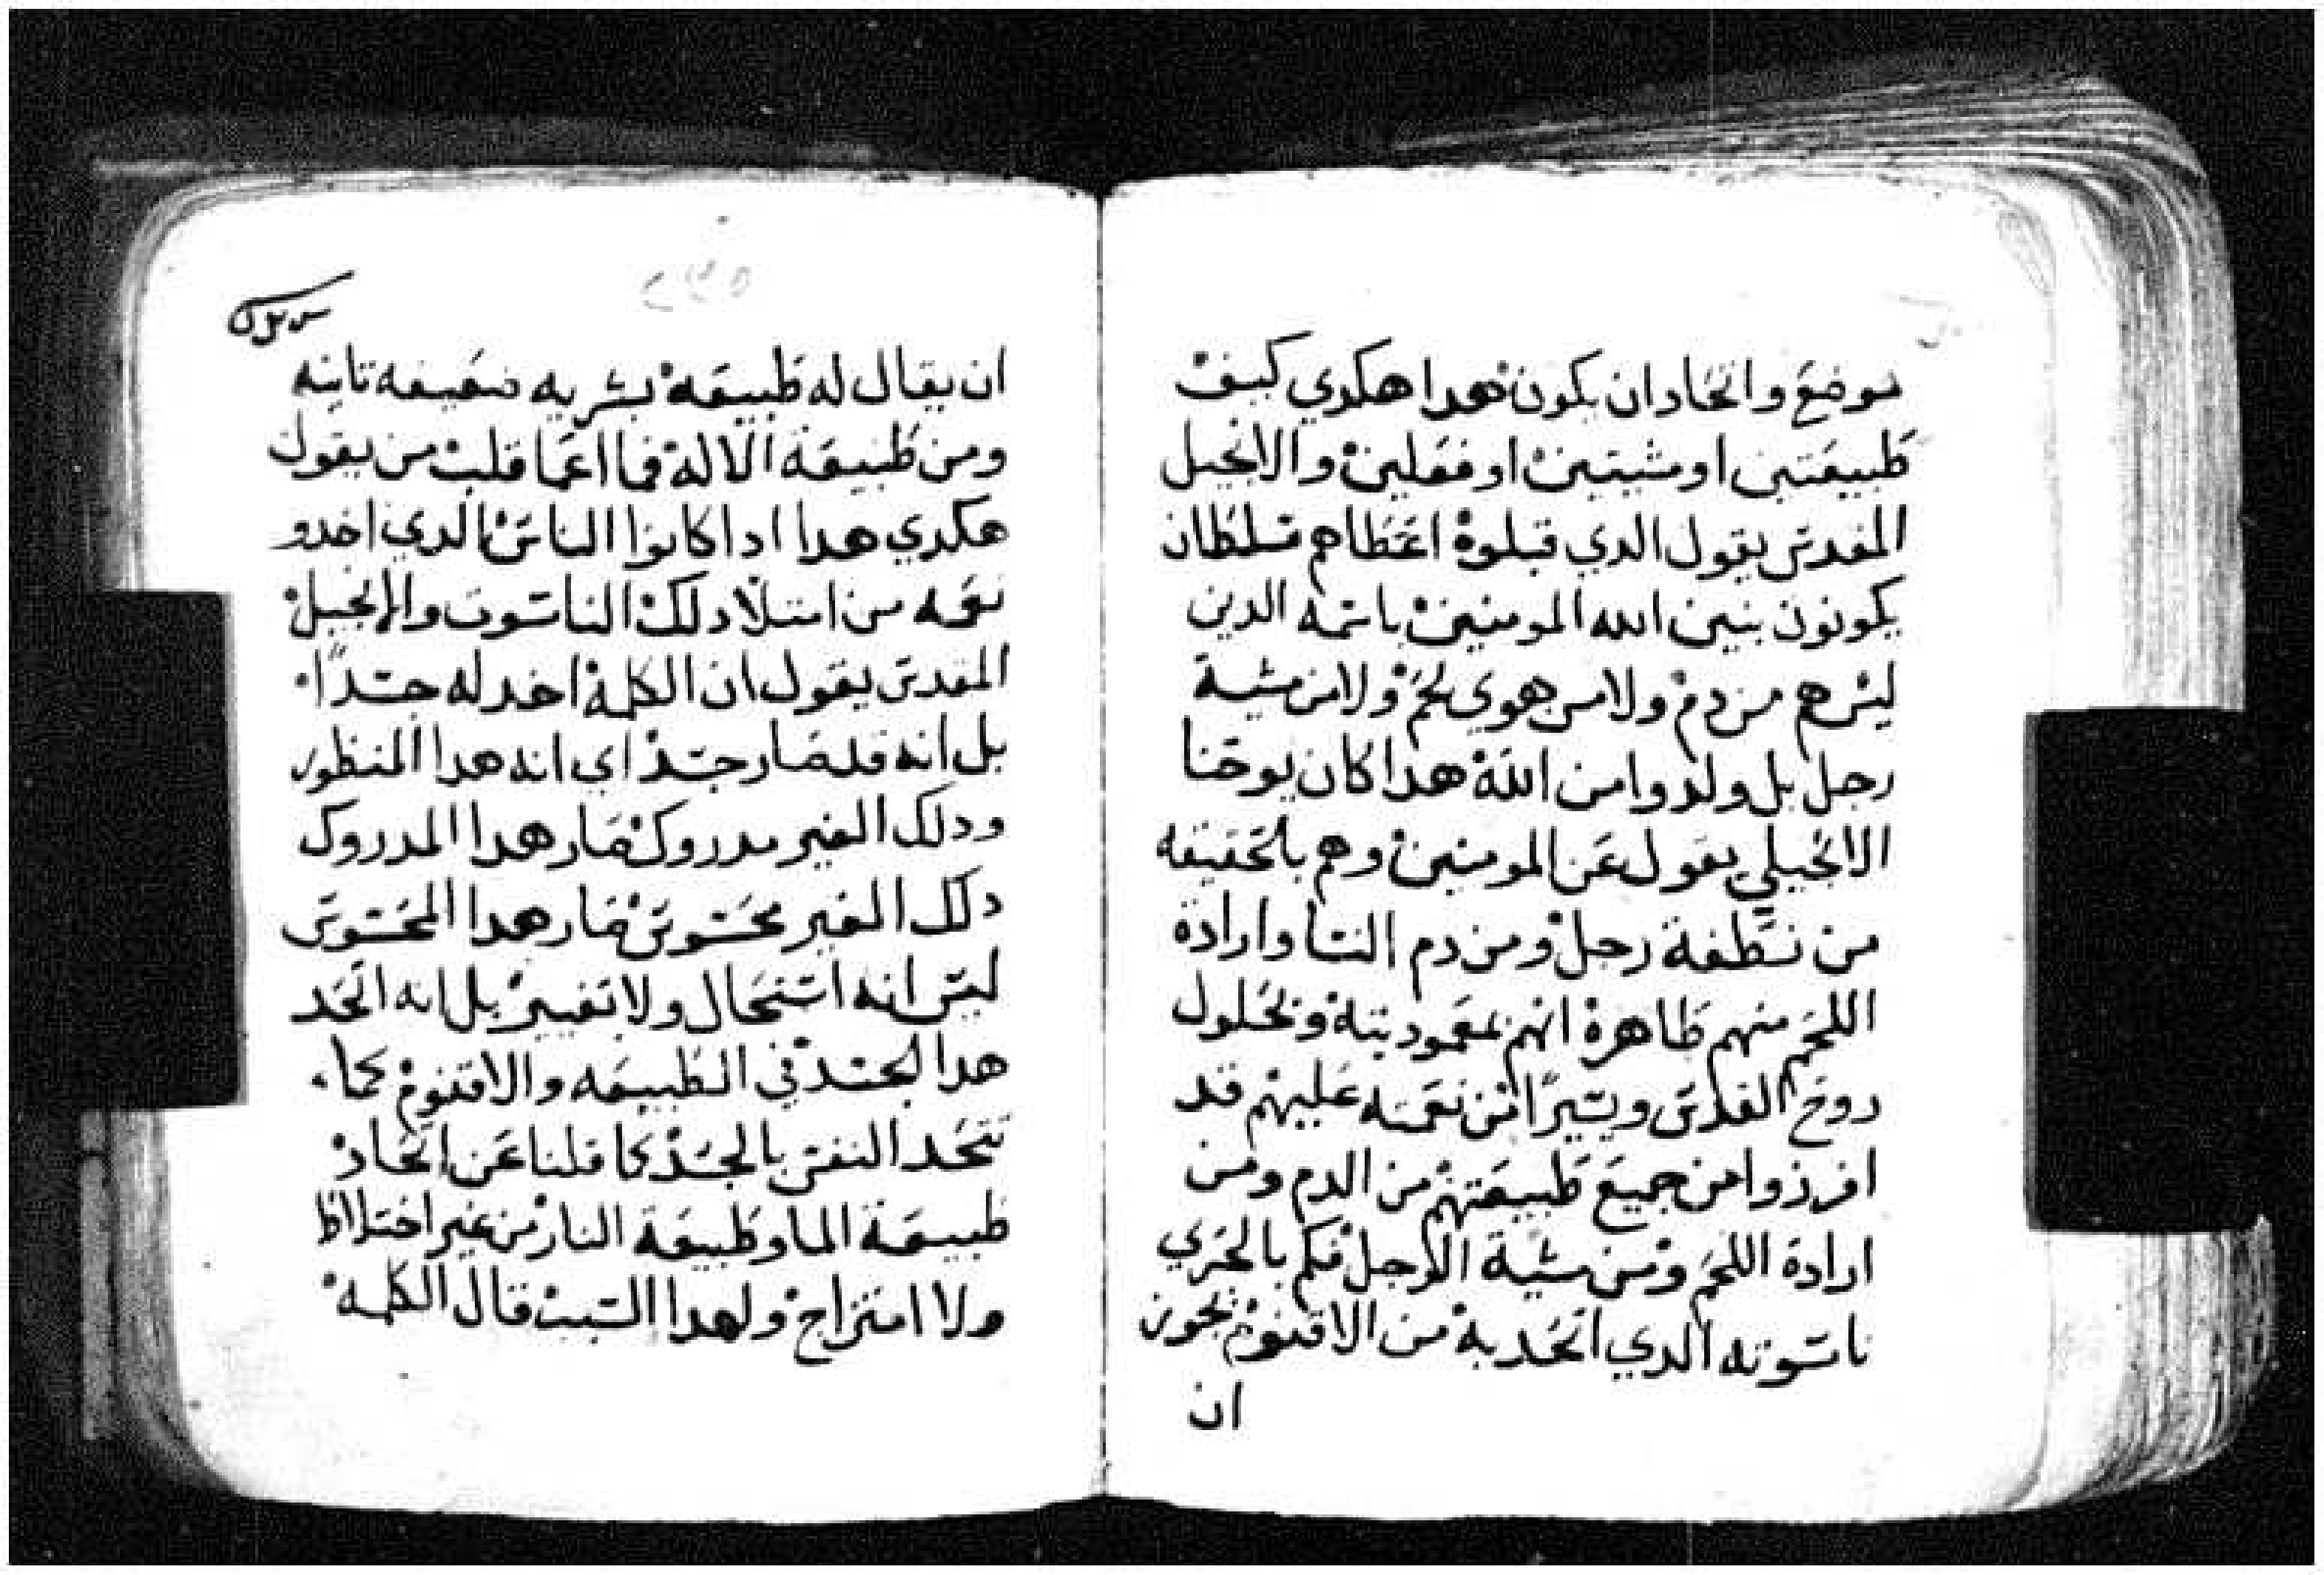 موضع واتحاد ان يكون هدا هكدي كيف
طبيعتين او مشيتين او فعلين والانجيل
المقدس يقول الدي قبلوه اعطاهم سلطان
يكونون بنين الله المومنين باسمه الدين
ليس هم من دم ولا من هوي لحم ولا من مشية
رجل بل ولدوا من الله هدا كان يوحنا
الانجيلي يقول عن المومنين وهم بالحقيقه
من نطفة رجل ومن دم النسا وارادة
اللحم منهم ظاهرة انهم بمعموديته وبحلول
روح القدس ويسيرًا من نعمته عليهم قد
افرزوا من جميع طبيعتهم من الدم ومن
ارادة اللحم ومن مشية الرجل فكم بالحري
ناسوته الدي اتحد به من الاقنوم يجوز
ان
٢٣٥
ان يقال له طبيعة بشريه ضعيفه تانيه
ومن طبيعة الاله فما اعما قلب من يقول
هكدي هدا ادا كانوا الناس الدي اخدو
نعمه من امتلا دلك الناسوت والانجيل
المقدس يقول ان الكلمة اخد له جسدًا
بل انه قد صار جسد اي انه هدا المنظور
ودلك الغير مدروك صار هدا المدروك
دلك الغير محسوس صار هدا المحسوس
ليس انه استحال ولا تغيير بل انه اتحد
هدا الجسد في الطبيعه والاقنوم كما
تتحد النفس بالجسد كما قلنا عن اتحاد
طبيعة الما وطبيعة النار من غير اختلاط
ولا امتزاج ولهدا السبب قال الكلمة